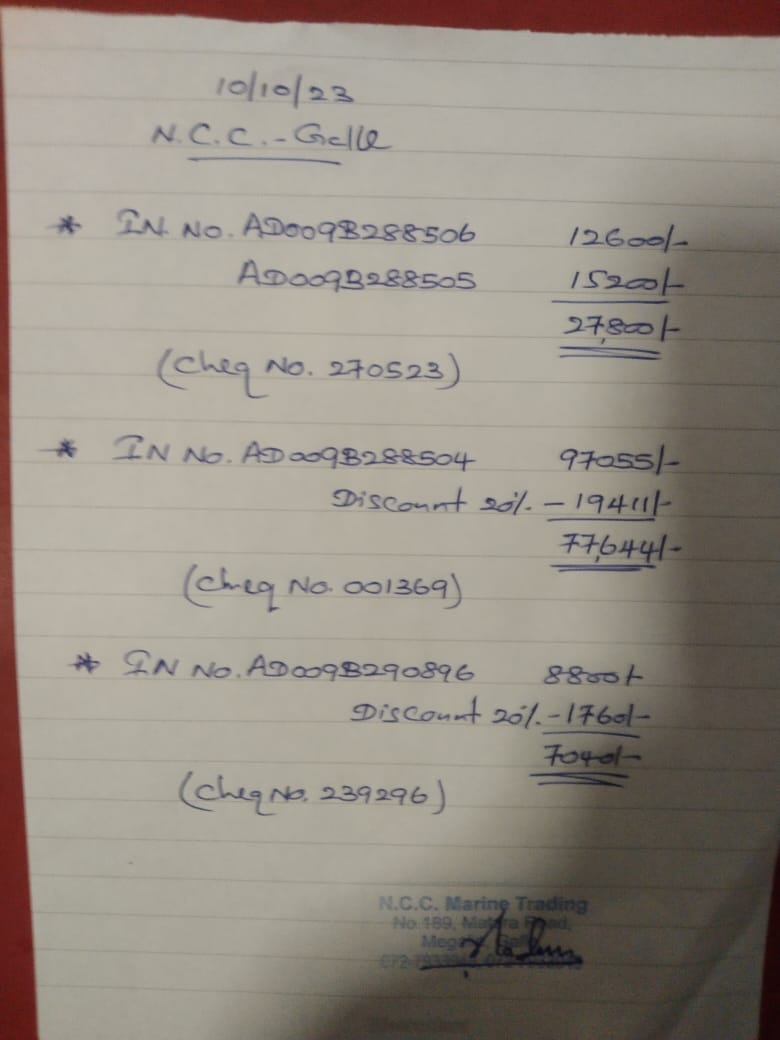 10/10/23
N.C.C. - Galle
* IN. No. AD009B288506 12600/-
AD009B288505 15200/-
27,800/-
(Cheq No. 270523)
* IN No. AD009B288504 97055/-
Discount 20%. - 19411/-
77,644/-
(Cheq No. 001369)
* IN No. AD009B290896 8800/-
Discount 20%. - 1760/-
7040/-
(Cheq No. 239296)
N.C.C. Marine Trading
No.189, Matara Road,
Galle